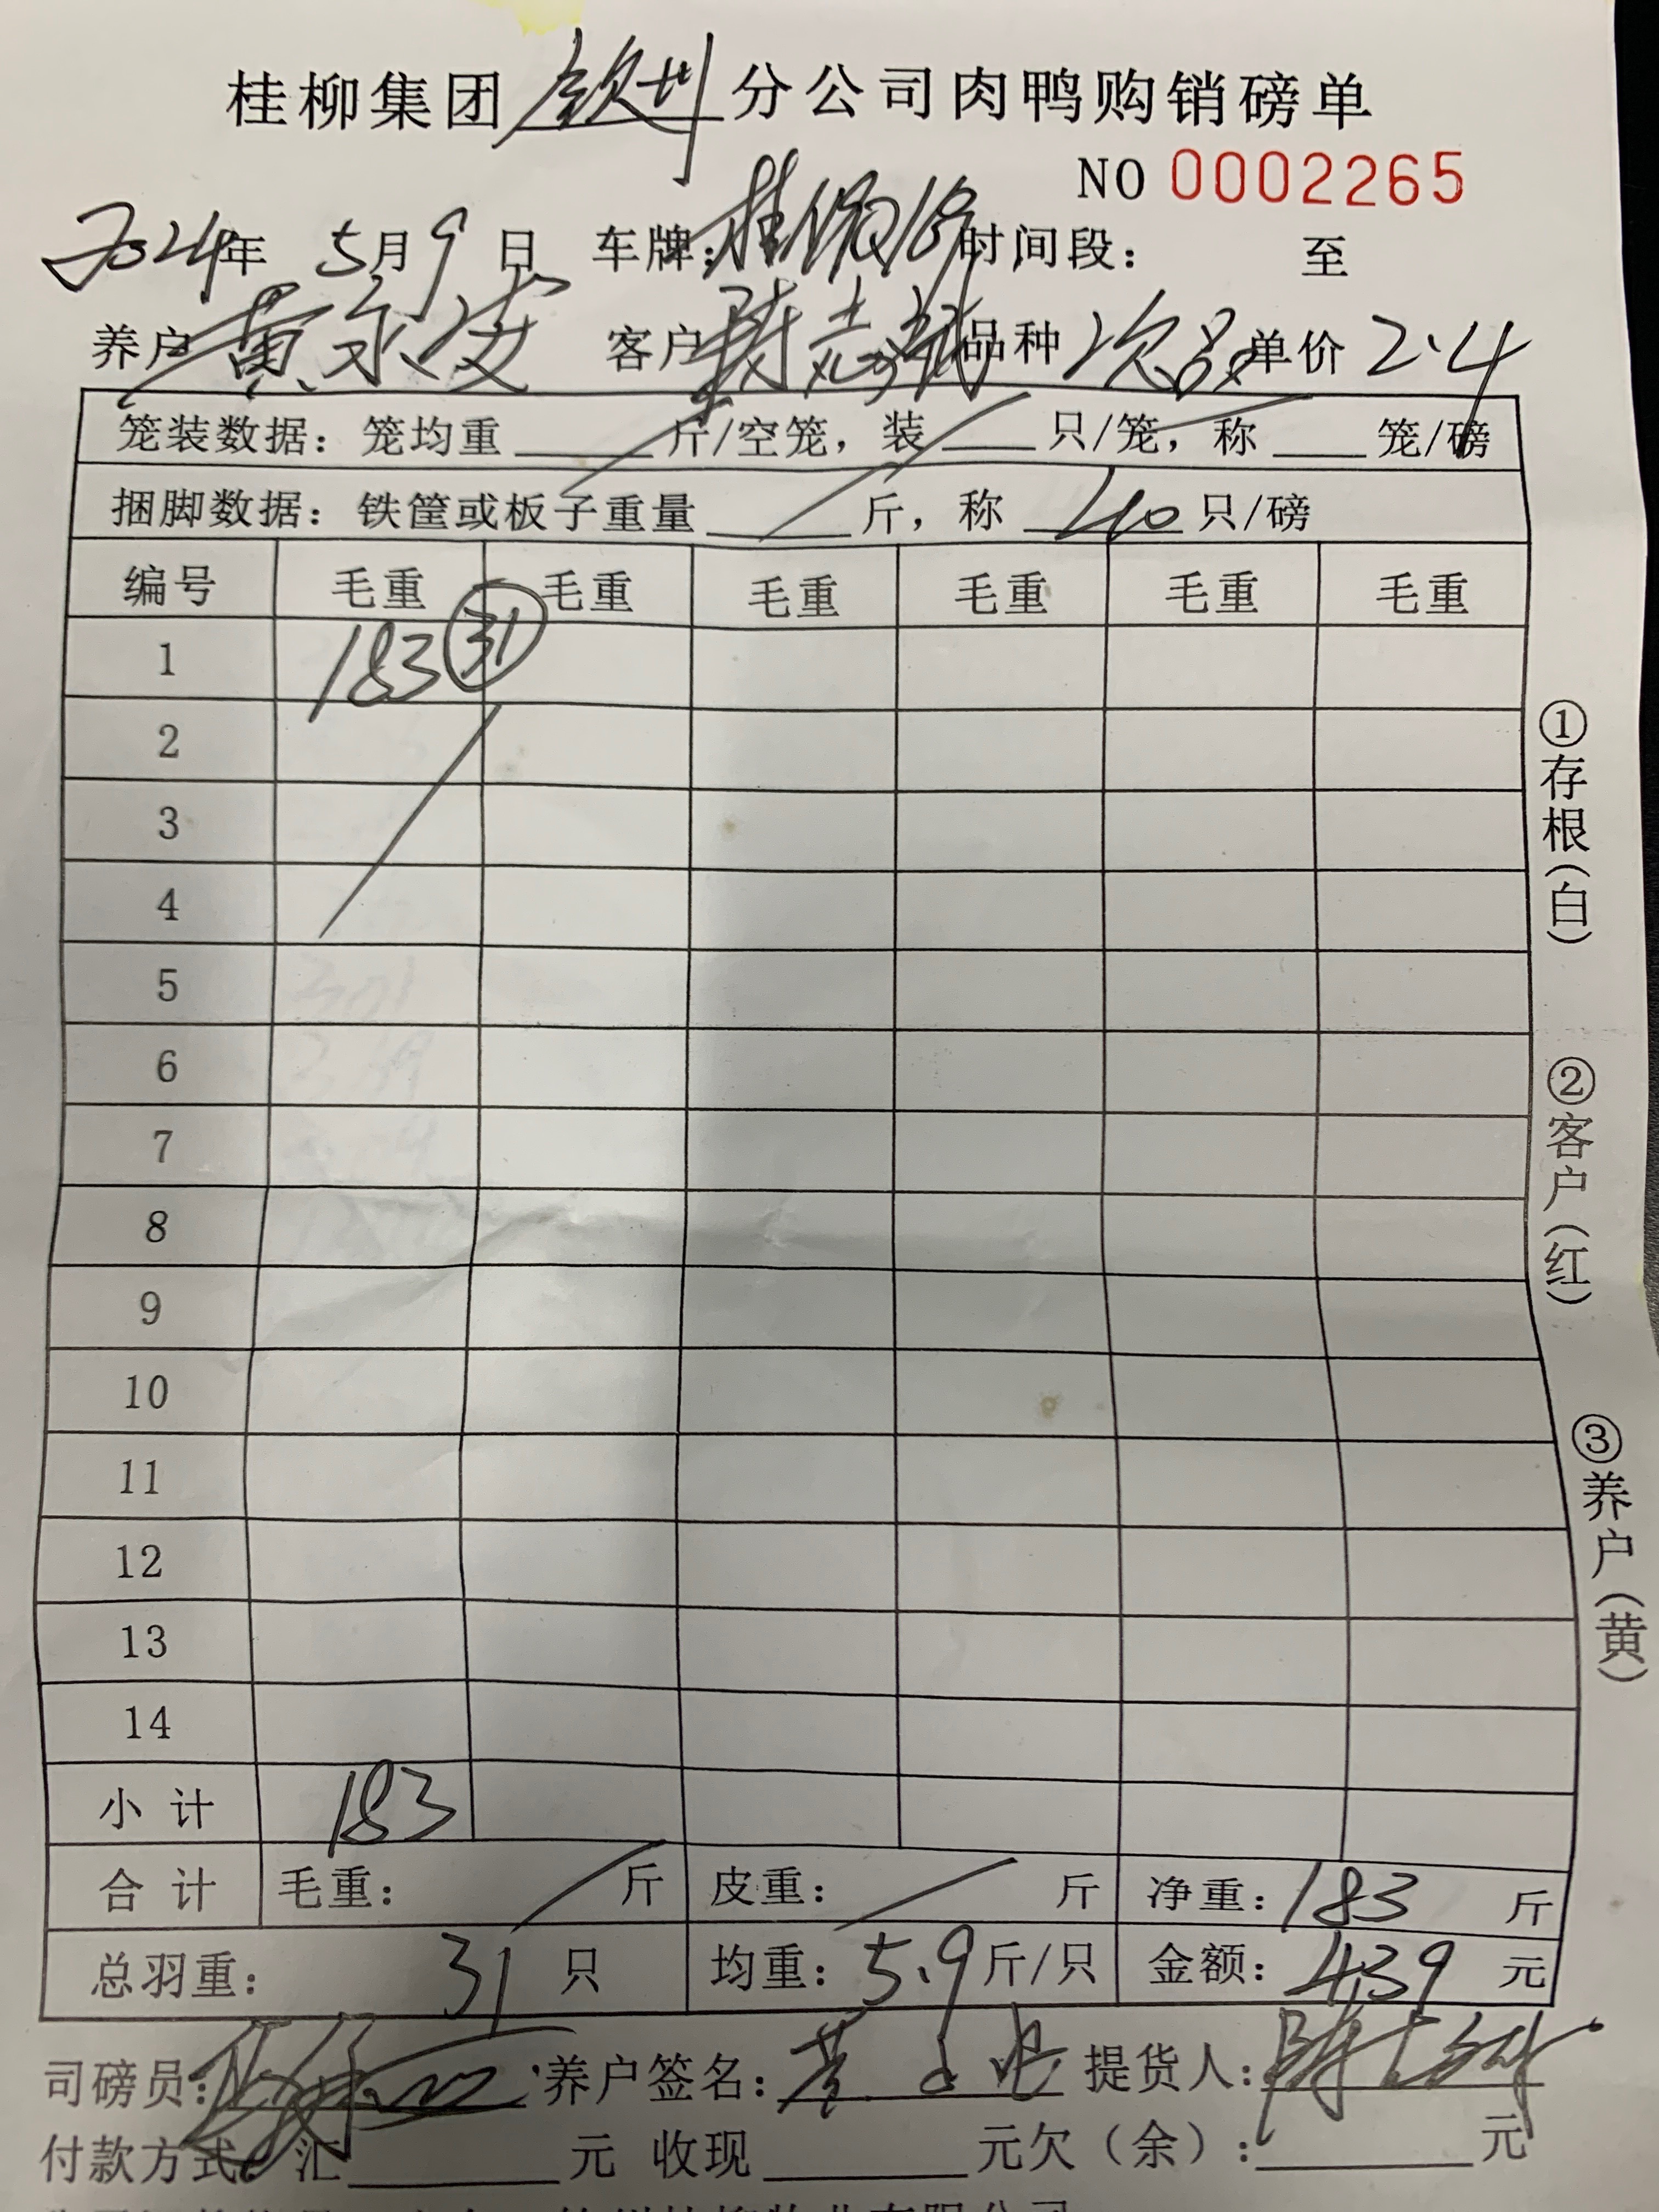 桂柳集团钦州分公司肉鸭购销磅单
NO 0002265
2024年 5月9日 车牌: 时间段: 至
养户 黄永安 客户 陈志 品种 次品 单价 2.4
笼装数据: 笼均重____斤/空笼, 装___只/笼, 称___笼/磅
捆脚数据: 铁筐或板子重量____斤, 称 40 只/磅
编号 毛重 毛重 毛重 毛重 毛重 毛重
1 183 31
2
3
4
5
6
7
8
9
10
11
12
13
14
小计 183
合计 毛重: 斤 皮重: 斤 净重: 183 斤
总羽重: 31 只 均重: 5.9 斤/只 金额: 439 元
司磅员: 养户签名: 提货人:
付款方式: 汇____元 收现____元欠(余):____元
①存根(白)
②客户(红)
③养户(黄)